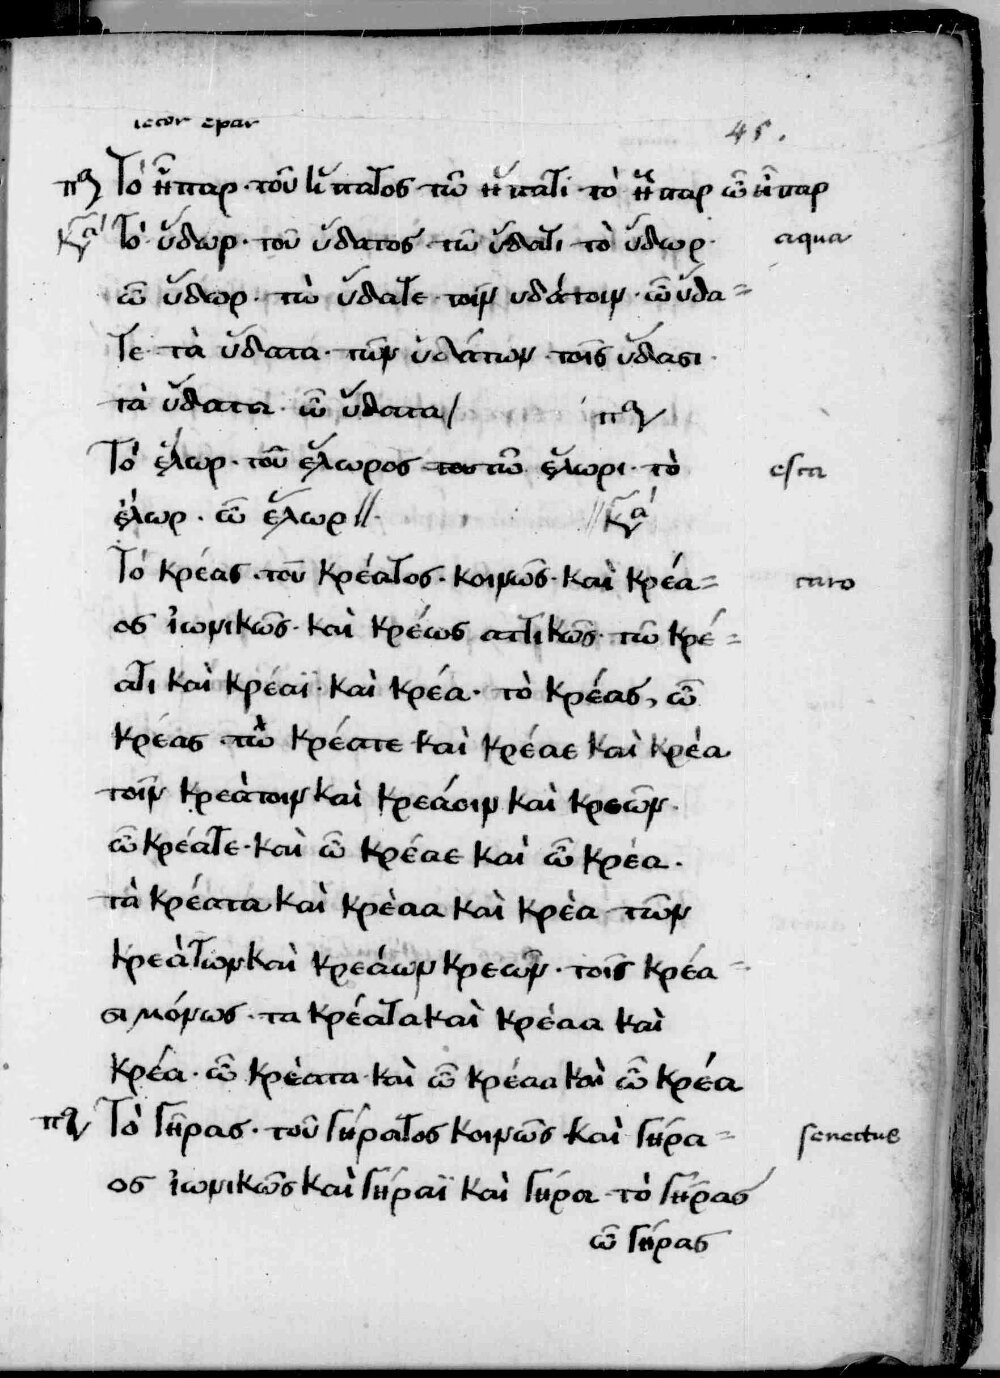 iecor epar
45.
Τὸ ἧπαρ · τοῦ ἥπατος τῶ ἥπατι · τὸ ἧπαρ ὦ ἧπαρ
Τὸ ὕδωρ · τοῦ ὕδατος · τῶ ὕδατι · τὸ ὕδωρ · aqua
ὦ ὕδωρ · τὼ ὕδατε · τοῖν υδάτοιν · ὦ ὕδα=
τε · τὰ ὕδατα · τῶν ὑδάτων · τοῖς ὕδασι ·
τὰ ὕδατα · ὦ ὕδατα/
Τὸ ἕλωρ · τοῦ ἕλωρος τῶ ἕλωρι · τὸ esca
ἕλωρ · ὦ ἕλωρ //
Τὸ κρέας · τοῦ κρέατος · κοινῶς · καὶ κρέα= caro
ος ἰωνικῶς · καὶ κρέως αττικῶς · τῶ κρέ=
ατι καὶ κρέαϊ · καὶ κρέα · τὸ κρέας, ὦ
κρέας · τὼ κρέατε καὶ κρέαε καὶ κρέα
τοῖν κρεάτοιν καὶ κρεάοιν καὶ κρεῶν ·
ὦ κρέατε · καὶ ὦ κρέαε καὶ ὦ κρέα ·
τὰ κρέατα καὶ κρέαα καὶ κρέα · τῶν
κρεάτων καὶ κρεάων κρεῶν · τοῖς κρέα=
σι μόνως · τα κρέατα καὶ κρέαα καὶ
κρέα · ὦ κρέατα καὶ ὦ κρέαα καὶ ὦ κρέα
Τὸ γῆρας · τοῦ γήρατος κοινῶς · καὶ γήρα= senectus
ος ἰωνικῶς καὶ γήραϊ καὶ γήρα · τὸ γῆρας
ὦ γῆρας